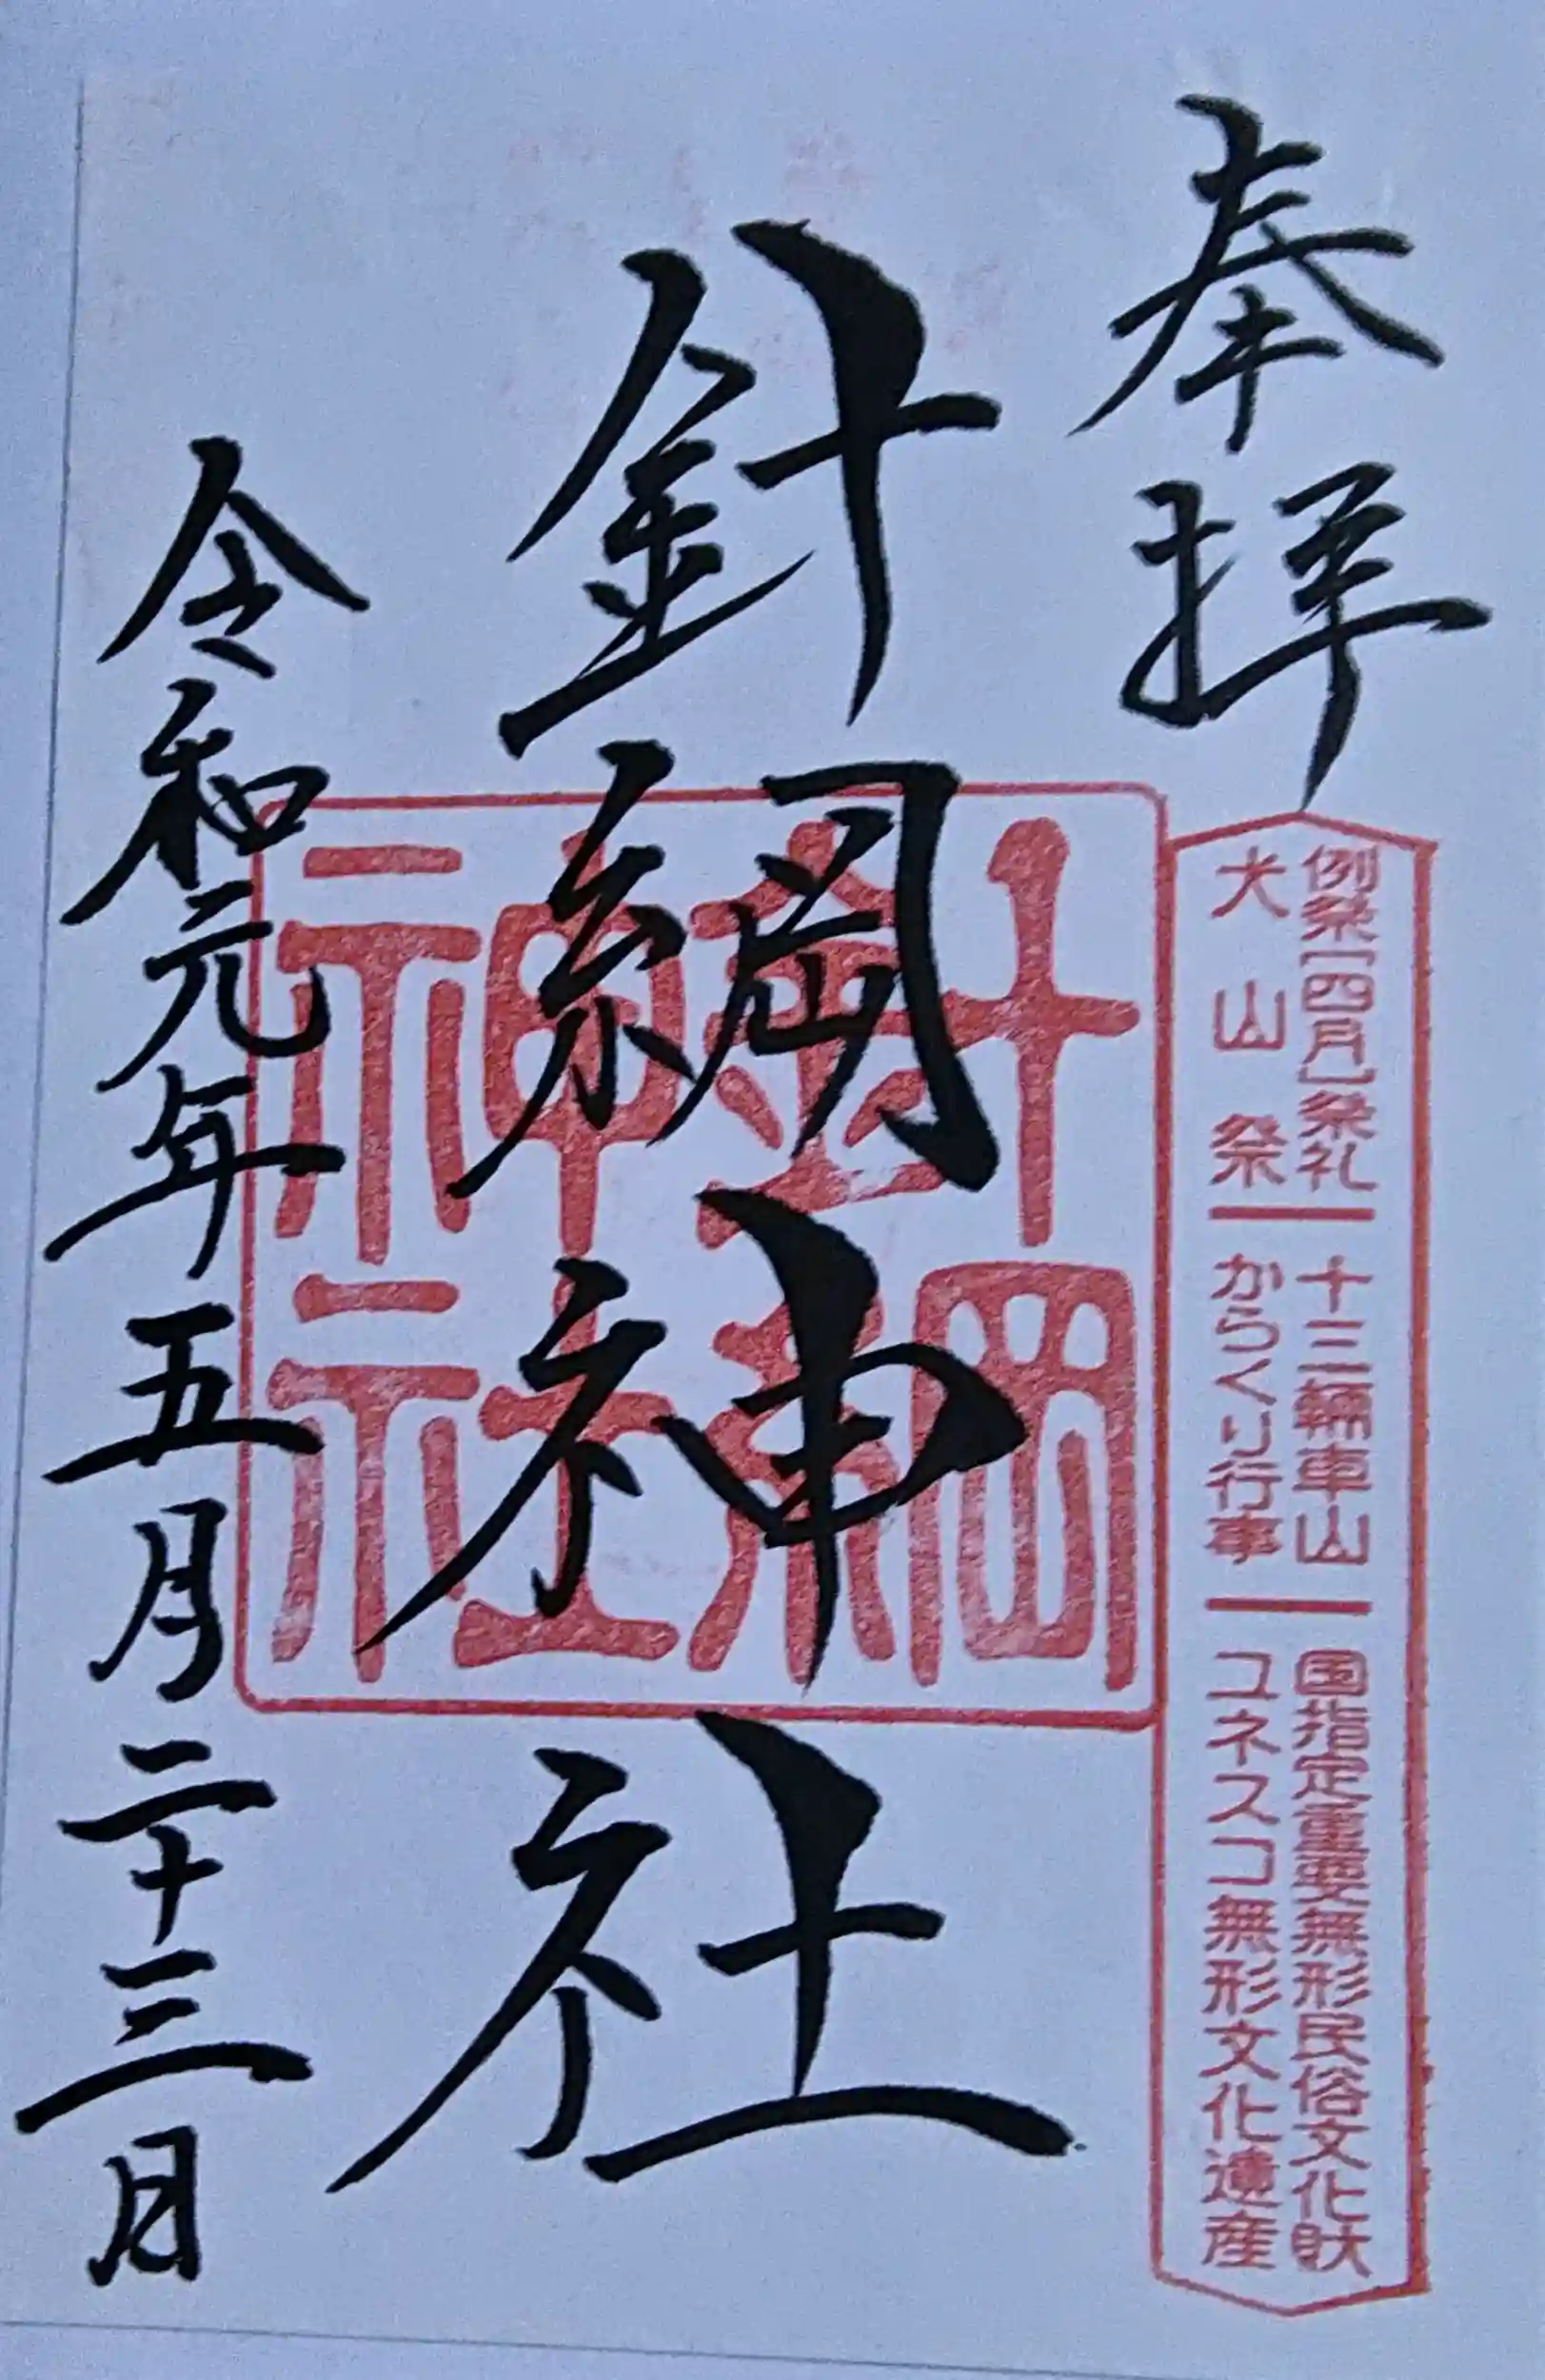 奉拝
例祭[四月]祭礼 十三輛車山 国指定重要無形民俗文化財
犬山祭 からくり行事 ユネスコ無形文化遺産
針綱神社
針綱神社
令和元年五月二十三日